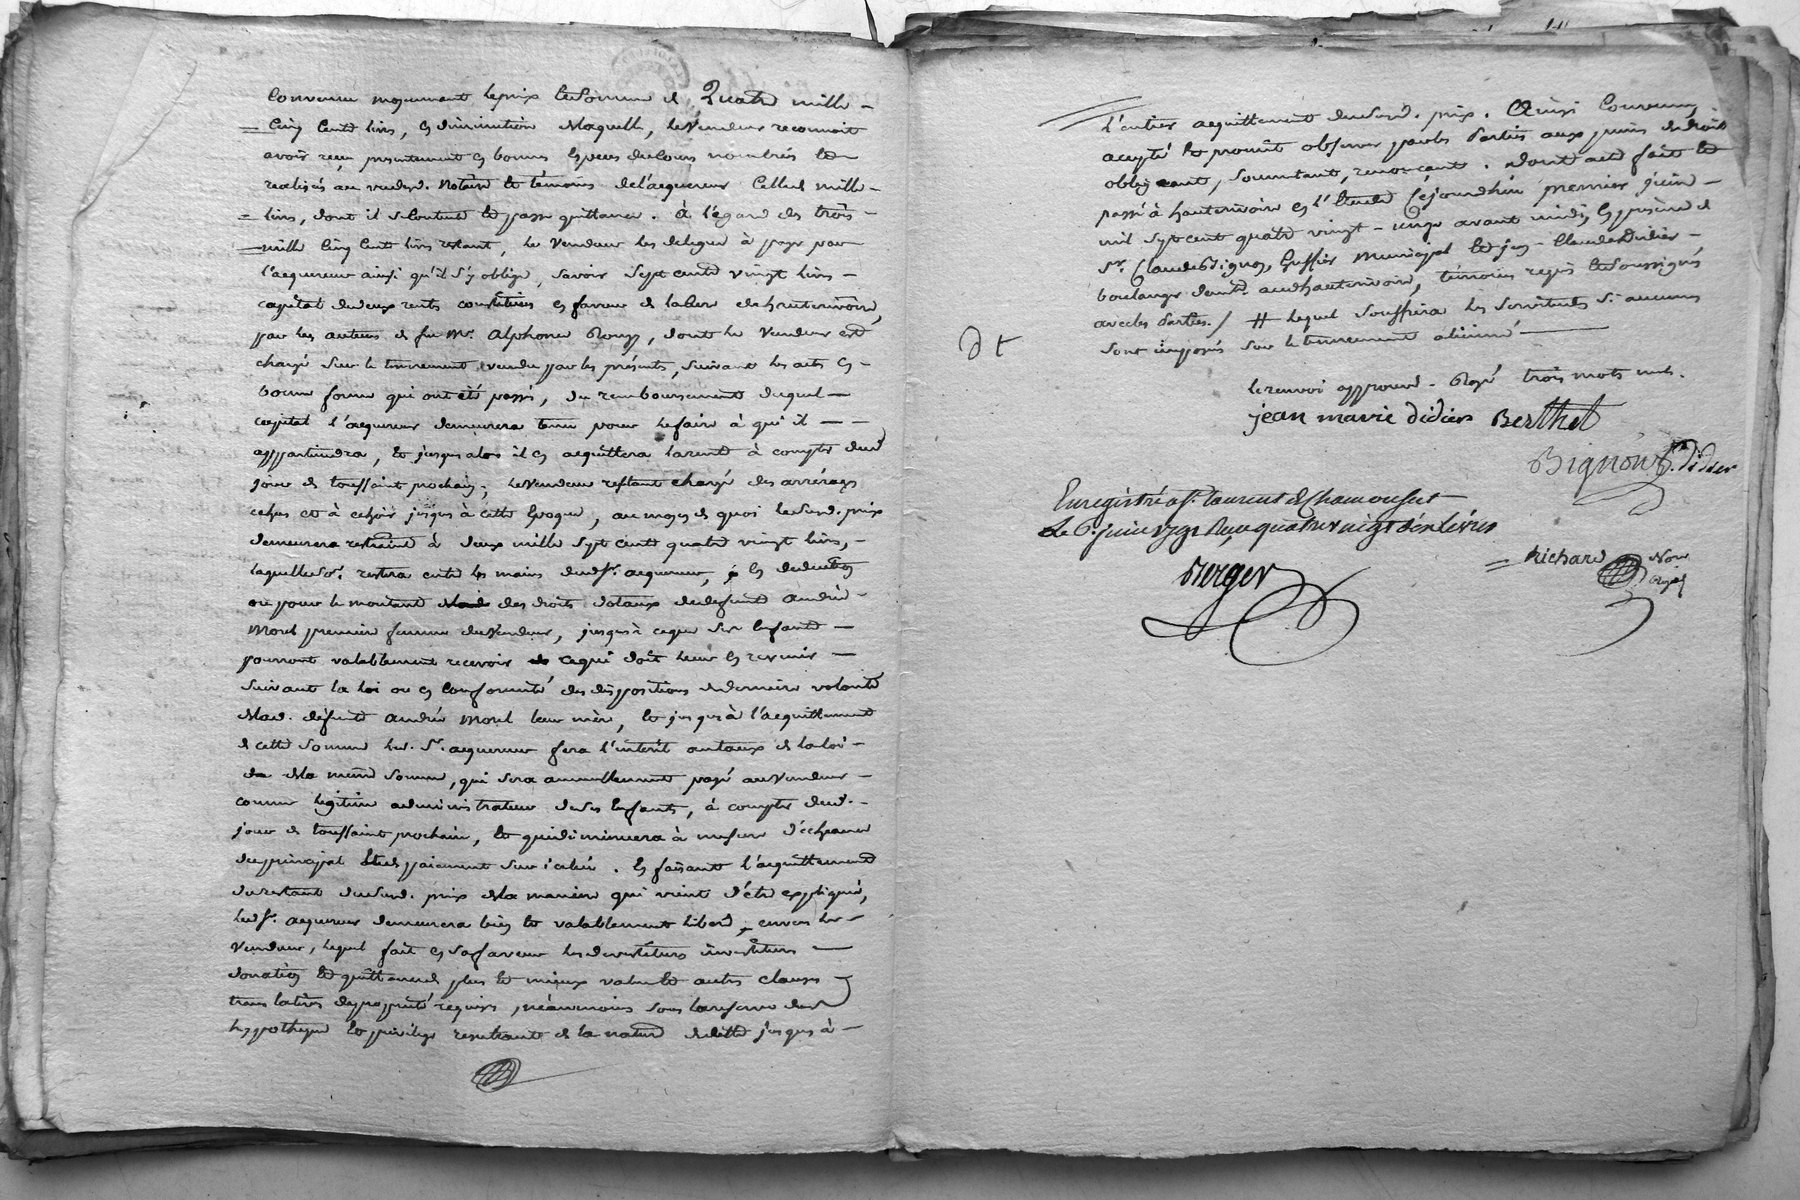 convenue moyennant le prix et somme de Quatre mille
cinq cents livres, en diminution de laquelle, le vendeur reconnoit
avoir reçu présentement en bonnes espèces de cours nombrés et
réalisés au vu dud. Notaire et témoins de l'acquereur celle de mille
livres, dont il se contente et passe quittance. à l'égard des trois
mille cinq cent livres restant, le vendeur les délègue à payer par
l'acquereur ainsi qu'il s'y oblige, savoir sept cents vingt livres
capital de deux rentes constituées en faveur de la cure de hauterivoire,
par les auteurs de feu Mr. Alphonse, dont le vendeur est
chargé sur le tennement vendu par les présentes, suivant les actes en
bonne forme qui ont été passés, du remboursement duquel
capital l'acquereur demeurera tenu pour le faire à qui il
appartiendra, et jusques alors il en acquittera la rente à compter dud.
jour de toussaint prochain; le vendeur restant chargé des arrérages
échus et à échoir jusques à cette époque, au moyen de quoi le susd. prix
demeurera restraint à deux mille sept cent quatre vingt livres,
laquelle se. restera entre les mains dud. sr. acquereur,
ou pour le montant des droits dotaux de defunte andrée
Morel première femme du vendeur, jusqu'à ce que ses enfants
pourront valablement recevoir ce qui doit leur en revenir
suivant la loi ou en conformité des dispositions de dernière volonté
de lad. défunte andrée Morel leur mère, et jusqu'à l'acquittement
de cette somme led. Sr. acquereur fera l'intérêt au taux de la loi
de la même somme, qui sera annuellement payé au vendeur
comme légitime administrateur de ses enfants, à compter dud.
jour de toussaint prochain, et qui diminuera à mesure
du principal paiement sur icelui. En faisant l'acquittement
du restant du susd. prix de la manière qui vient d'être expliquée,
led. sr. acquereur demeurera bien et valablement libéré, envers le
vendeur, lequel fait en sa faveur les devestitures investitures
donation et quittance de plus et mieux value et autres clauses
translatives de propriété requises, néanmoins sous la reserve des
hypotheque et privilege résultants de la nature de dette jusques à
l'entier acquittement du susd. prix. Ainsi convenu,
accepté et promis observer par les Parties aux peines de droit
obligeant, soumettant, renonçant. Dont acte fait et
passé à hauterivoire en l'étude cejourd'hui premier juin
mil sept cent quatre vingt-onze avant midi, en présence de
Sr. Claude Bignon, Greffier Municipal et de Jn. Claude Didier
boulanger demt. aud. hauterivoire, témoins requis et soussignés
avec les Parties./ # lequel souffrira les servitudes si aucunes
sont imposées sur le tennement aliéné
le renvoi approuvé. Rayé trois mots nuls.
jean marie didier Berthet
Bignon J. C. didier
Enregistré à St. laurent de Chamousset
Le 6. juin 1791 Reçu quatre vingt dix livres
Berger
Richard Nore
Royal